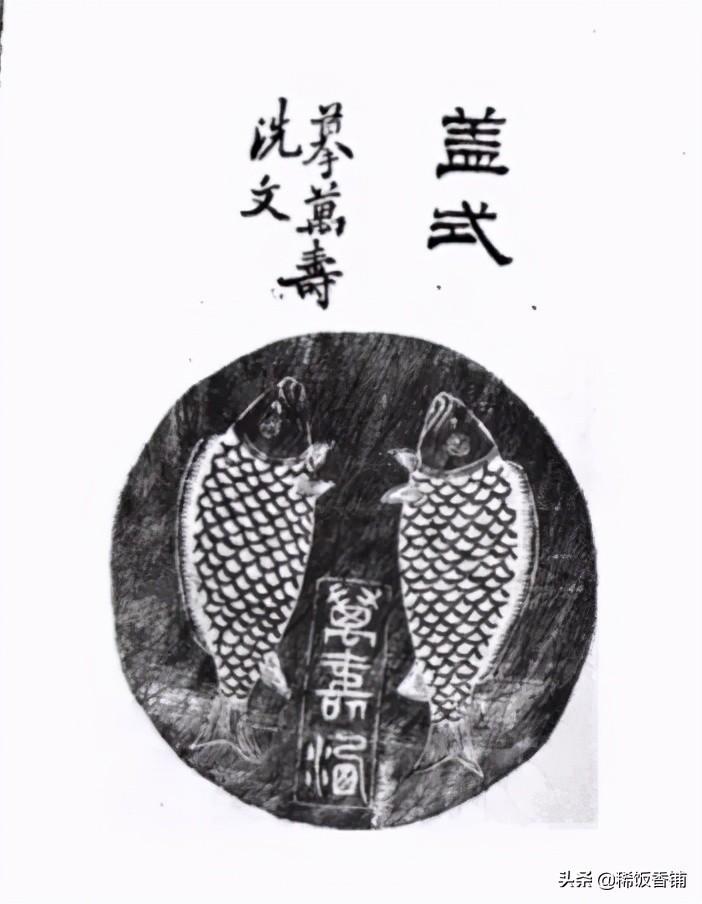 盖式
摹萬壽
洗文
萬壽
头条 @稀饭香铺